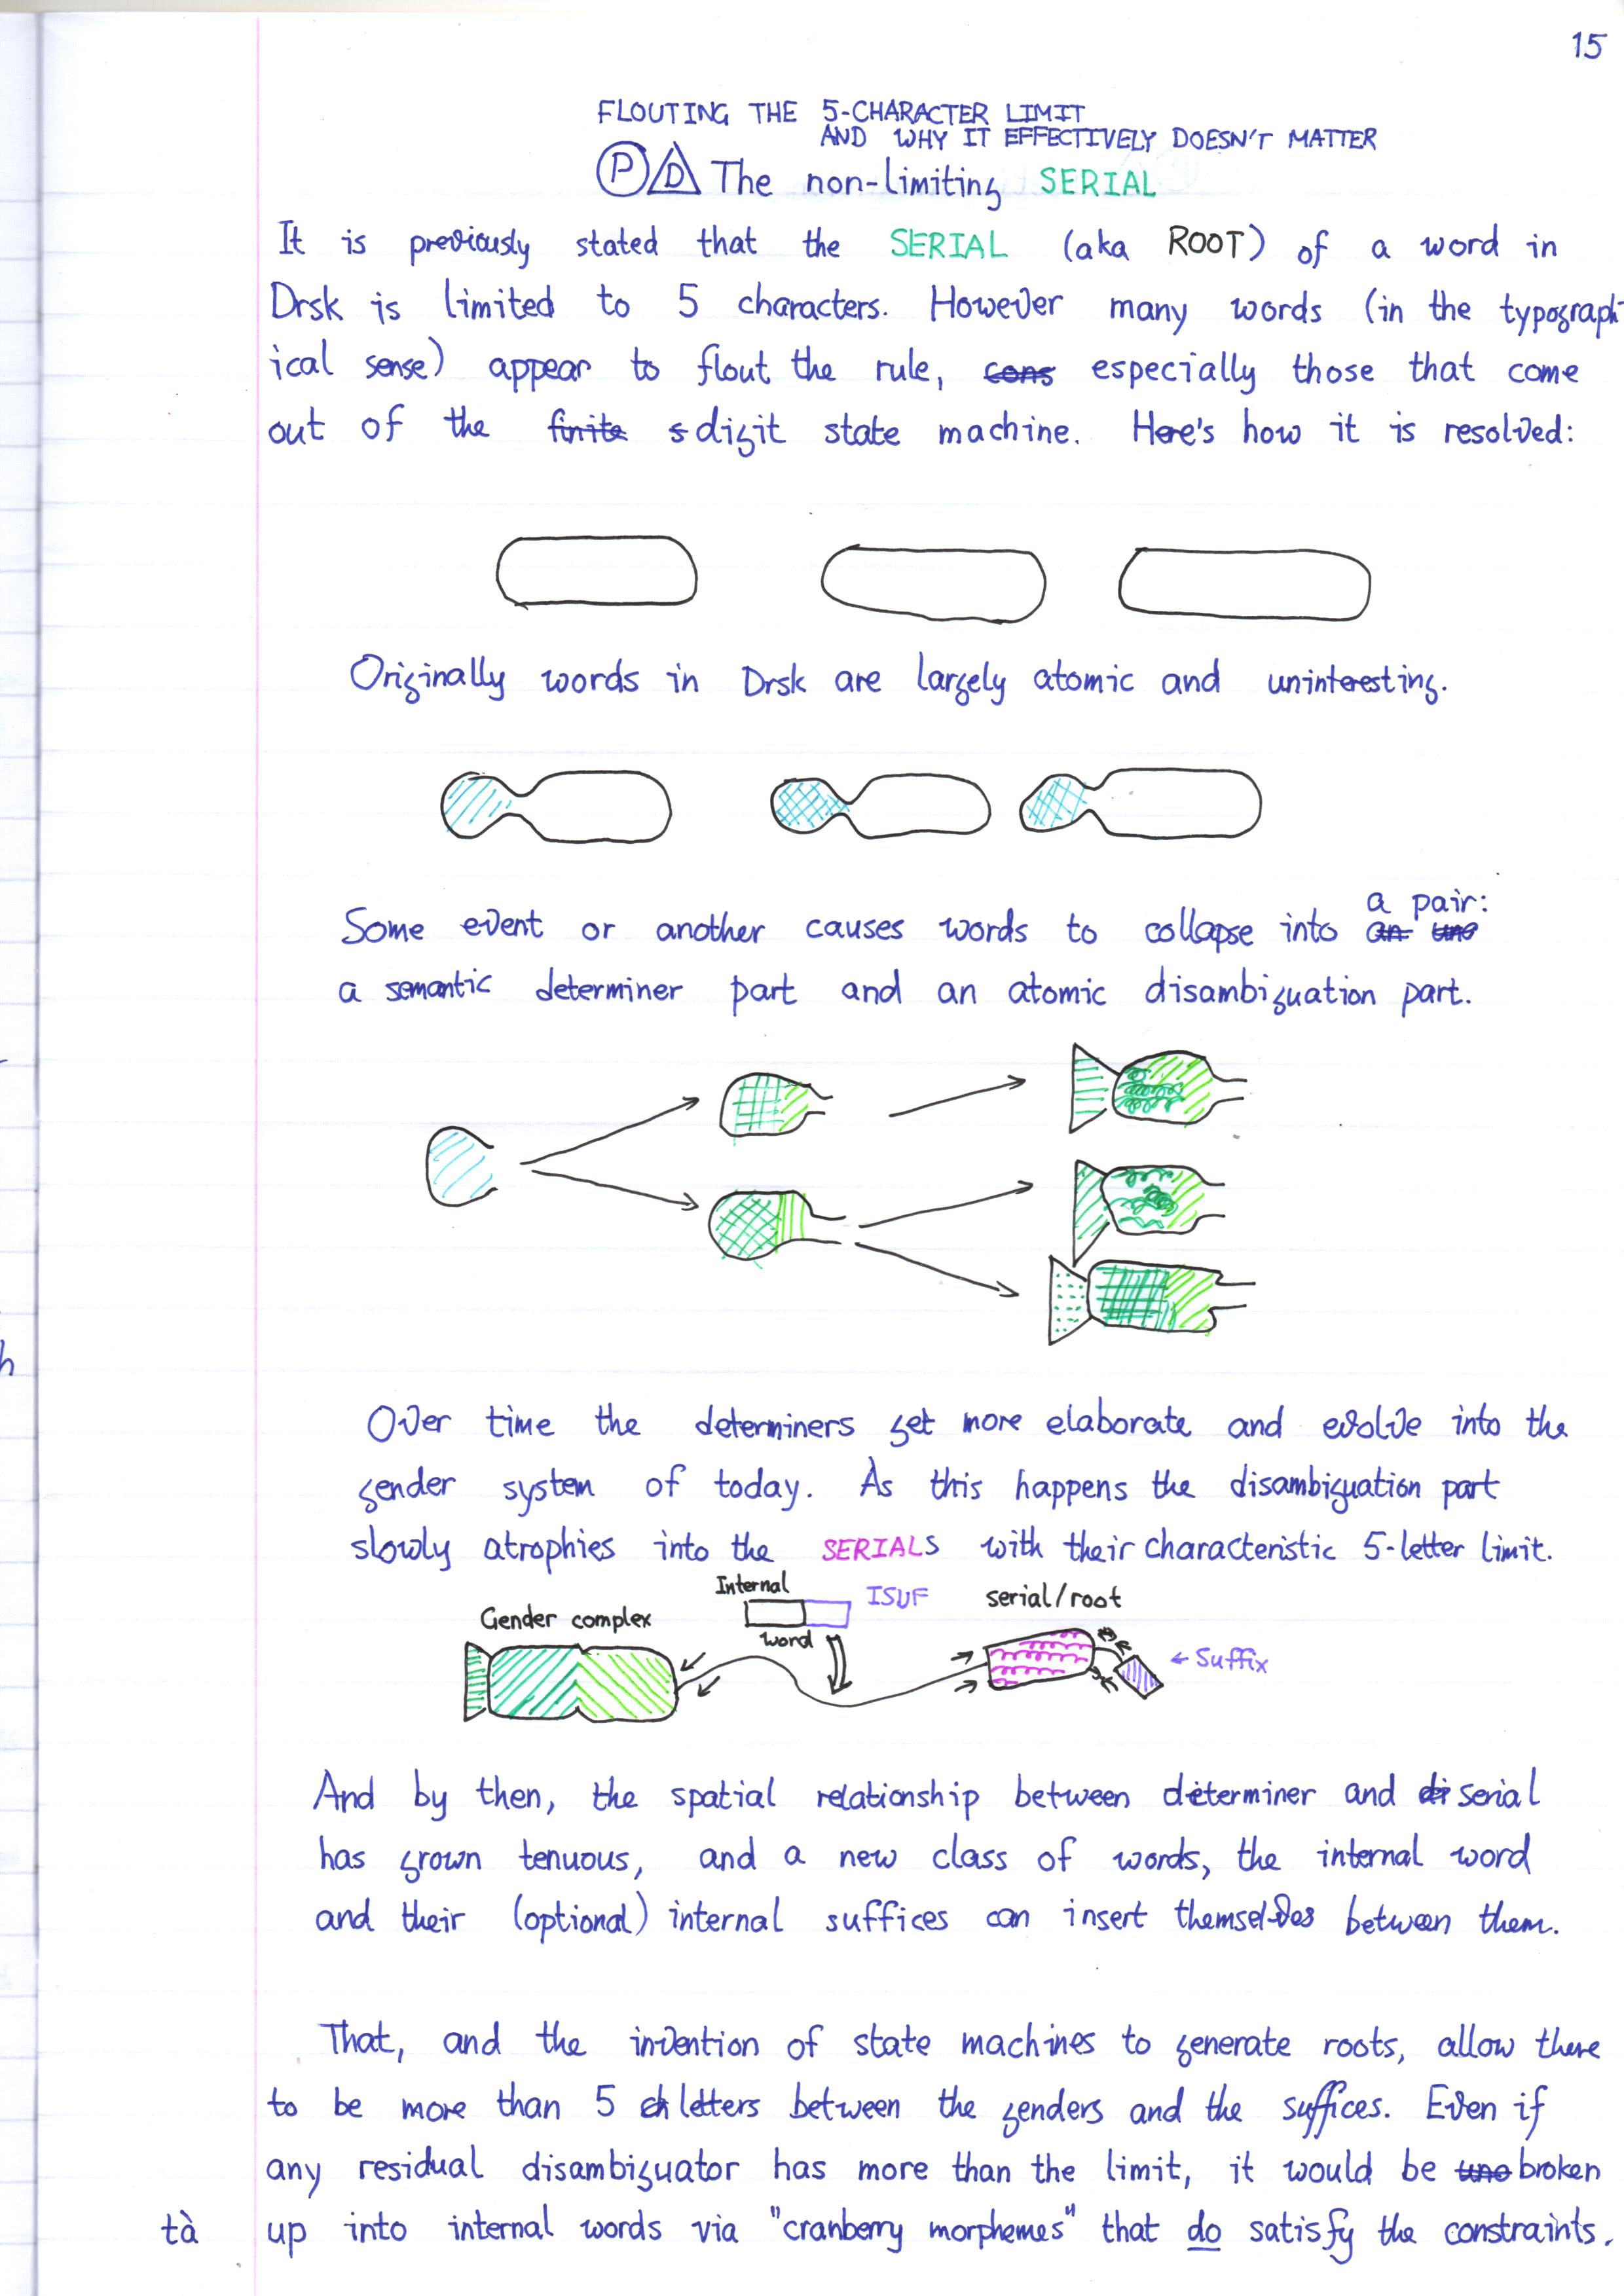 15
FLOUTING THE 5-CHARACTER LIMIT
AND WHY IT EFFECTIVELY DOESN'T MATTER
P D The non-limiting SERIAL
It is previously stated that the SERIAL (aka ROOT) of a word in
Drsk is limited to 5 characters. However many words (in the typograph-
ical sense) appear to flout the rule, cons especially those that come
out of the finite s digit state machine. Here's how it is resolved:
Originally words in Drsk are largely atomic and uninteresting.
a pair:
Some event or another causes words to collapse into an uno
a semantic determiner part and an atomic disambiguation part.
Over time the determiners get more elaborate and evolve into the
gender system of today. As this happens the disambiguation part
slowly atrophies into the SERIALS with their characteristic 5-letter limit.
Internal
ISUF
serial/root
Gender complex
word
← Suffix
And by then, the spatial relationship between determiner and di serial
has grown tenuous, and a new class of words, the internal word
and their (optional) internal suffices can insert themselves between them.
That, and the invention of state machines to generate roots, allow there
to be more than 5 ch letters between the genders and the suffices. Even if
any residual disambiguator has more than the limit, it would be uno broken
tà up into internal words via "cranberry morphemes" that do satisfy the constraints.